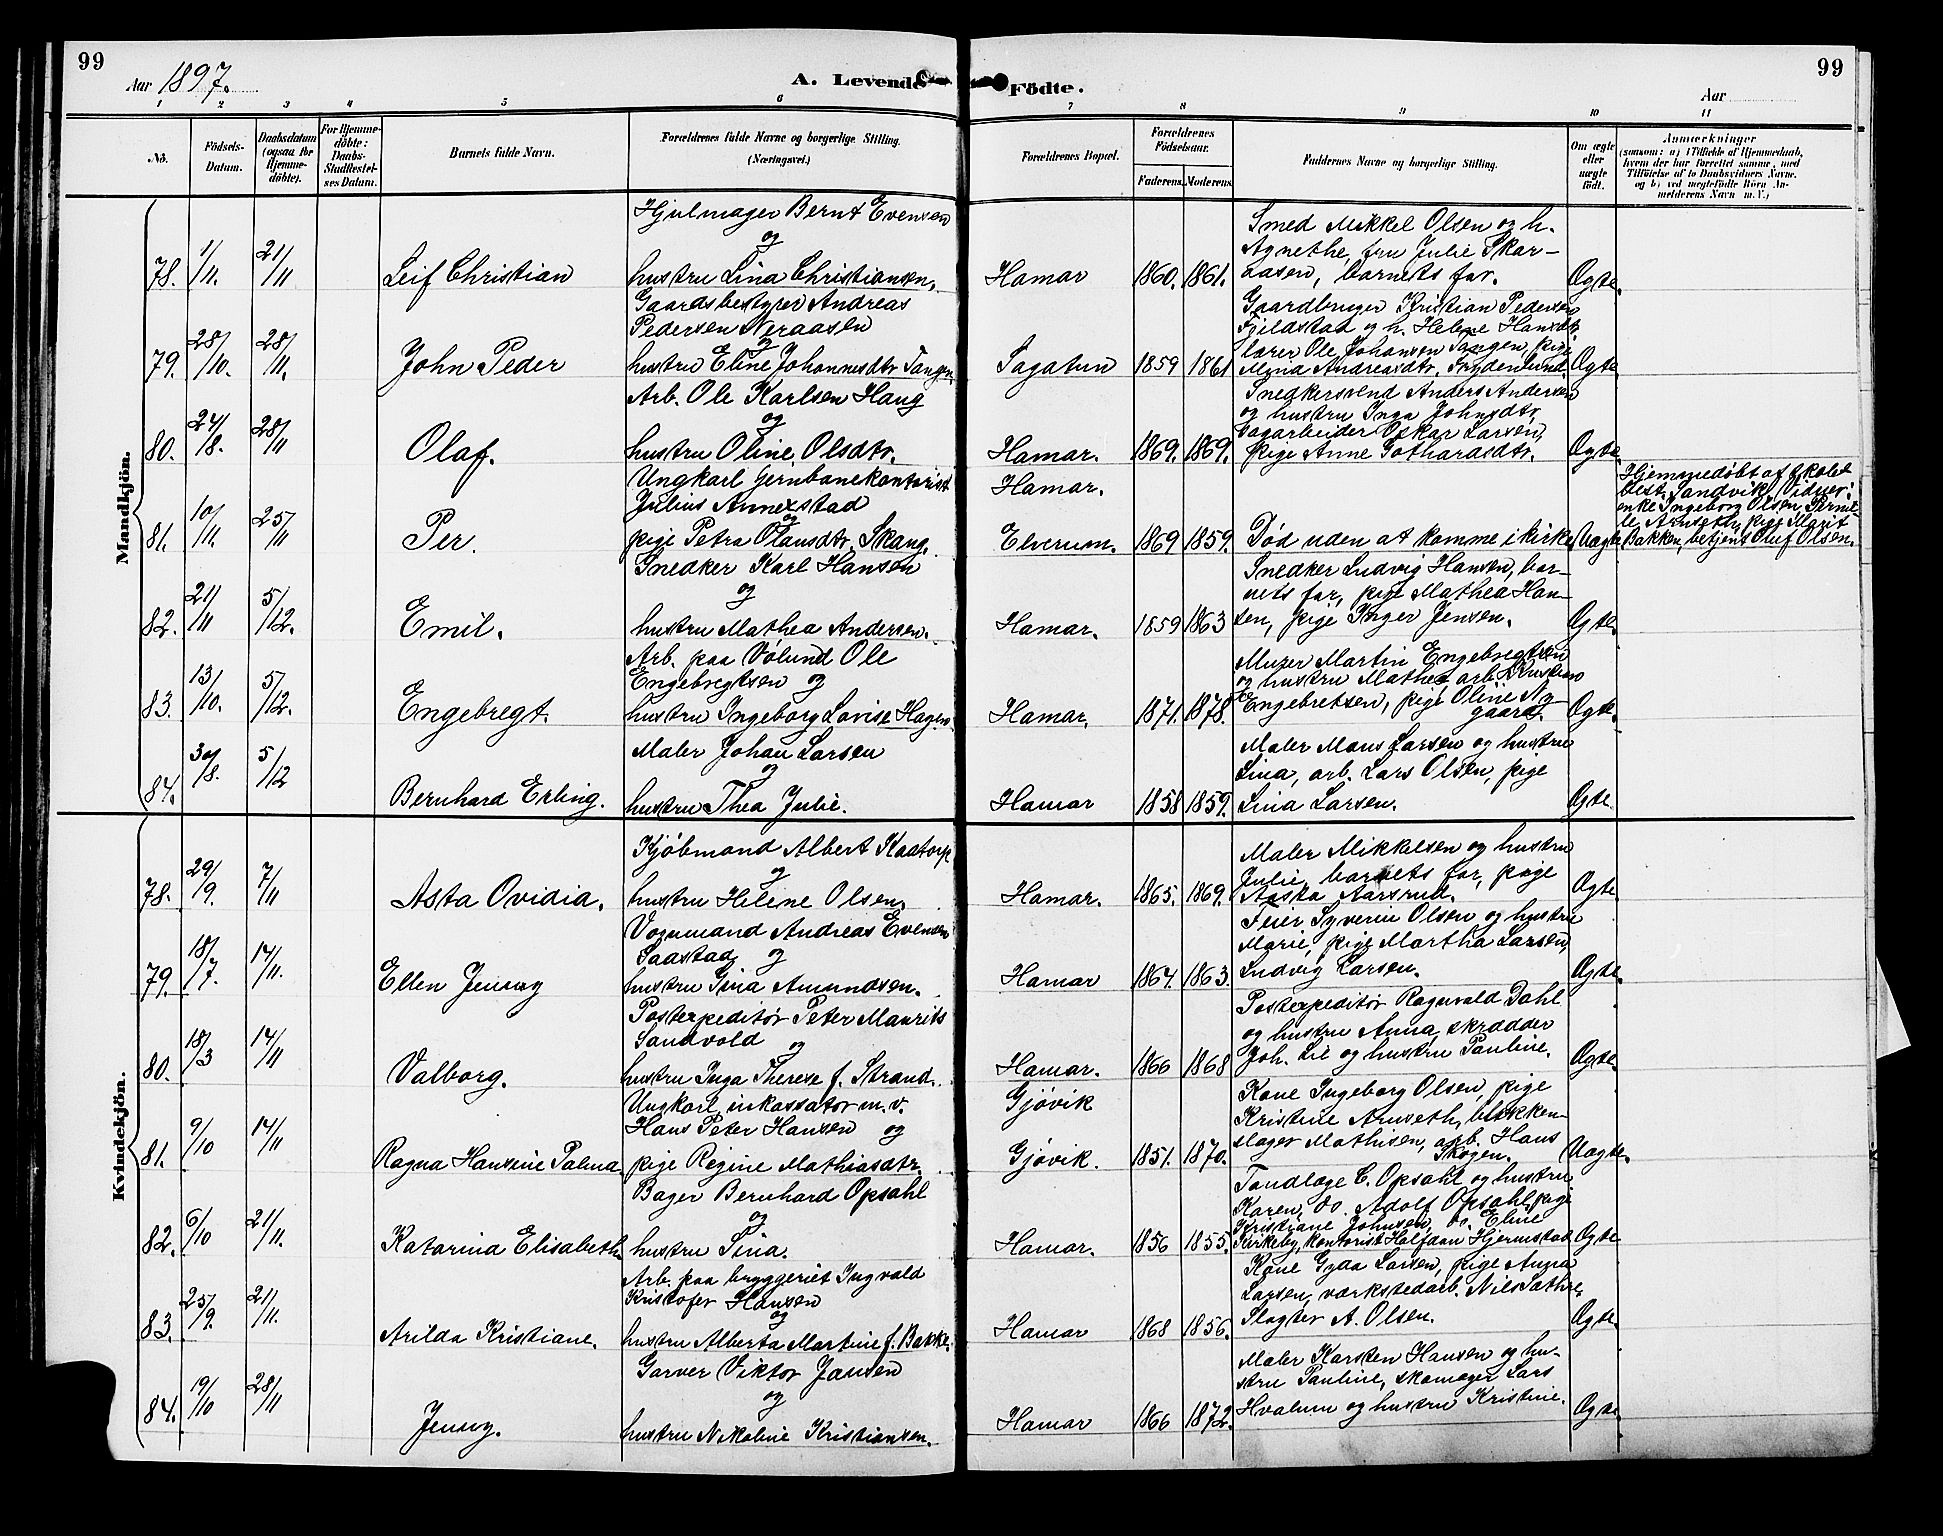 99
Aar 1897.
A. Levende Födte.
99
Aar
1 2 3 4 5 6 7 8 9 10 11
No.
Födsels-Datum.
Daabsdatum (ogsaa for Hjemme-döbte).
For Hjemme-döbte: Daabs-Stadfæstel-ses Datum.
Barnets fulde Navn.
Forældrenes fulde Navne og borgerlige Stilling. (Næringsvei.)
Forældrenes Bopæl.
Forældrenes Födselsaar.
Faderens. Moderens.
Faddernes Navne og borgerlige Stilling.
Om ægte eller uægte født.
Anmærkninger
(saasom: a) i Tilfælde af Hjemmedaab, hvem der har forrettet samme, med Tilföielse af to Daabsvidners Navne, og b) ved uægtefödte Börn An-melderens Navn m. V.)
Mandkjön.
Hjulmager Bernt Evensen
og
78. 1/11. 21/11 Leif Christian hustru Lina Christiansen. Hamar 1860. 1861. Ægte.
Smed Mikkel Olsen og h.
Agnethe, fru Julie Skar-
aasen, barnets far.
Gaardsbestyrer Andreas
Pedersen Neraasen
og
79. 28/10. 28/11. John Peder hustru Eline Johannesdtr Tangen Sagatun 1859 1861 Ægte.
Gaardbruger Kristian Pedersen
Fjeldstad og h. Helene Hansdtr,
lærer Ole Johansen Tangen, pige
Mina Andreasdtr. Frydenlund.
Arb. Ole Karlsen Haug
og
80. 24/8. 28/11 Olaf. hustru Oline Olsdtr. Hamar. 1869. 1869. Ægte.
Snedkersvend Anders Andersen
og hustru Inga Johnsdtr,
Dagarbeider Oskar Larsen,
pige Anne Gothardsdtr.
Ungkarl Jernbanekontorist Hamar.
Julius Annexstad
og
81. 10/11. 25/11 Per. pige Petra Olausdtr. Skaug. Elverum. 1869 1859. Død uden at komme i kirke Uægte
Hjemmedøbt af skole-
best. Sandvik. Vidner:
enke Ingeborg Olsen, Pernil-
le Arnseth, pige Marit
Bakken, betjent Oluf Olsen.
Snedker Karl Hansen
og
82. 21/11 5/12. Emil. hustru Mathea Andersen. Hamar. 1859 1863 Ægte.
Snedker Ludvig Hansen, bar-
nets far, pige Mathea Han-
sen, pige Inger Jensen.
Arb. paa Vølund Ole
Engebregtsen og
83. 13/10. 5/12. Engebregt. hustru Ingeborg Lovise Hagen. Hamar. 1871. 1878. Ægte.
Murer Martin Engebregtsen
og hustru Mathea, arb. Kristian
Engebretsen, pige Oline Ny-
gaard.
Maler Johan Larsen
og
84. 30/8. 5/12 Bernhard Erling. hustru Thea Julie. Hamar 1858 1859. Ægte.
Maler Maus Larsen og hustru
Lina, arb. Lars Olsen, pige
Lina Larsen.
Kvindekjön.
Kjøbmand Albert Kaatorp
og
78. 29/9. 7/11 Asta Ovidia. hustru Helene Olsen. Hamar. 1865. 1869. Ægte
Maler Mikkelsen og hustru
Julie, barnets far, pige
Aasta Aarsrud.
Vognmand Andreas Evensen
Saastad og
79. 18/7. 14/11. Ellen Jenny hustru Gina Amundsen. Hamar 1864. 1863. Ægte.
Feier Syverin Olsen og hustru
Marie, pige Martha Larsen,
Ludvig Larsen.
Postexpeditør Peter Maurits
Sandvold og
80. 18/3 14/11 Valborg. hustru Inga Therese f. Strand. Hamar. 1866 1868 Ægte.
Postexpeditør Ragnvald Dahl
og hustru Anna, skrædder
Joh. Lie og hustru Pauline.
Ungkarl, inkassator m. v. Gjøvik
Hans Peter Hansen og
81. 9/10 14/11 Ragna Hansine Palma. pige Regine Mathiasdtr. Gjøvik. 1851. 1870. Uægte.
Kone Ingeborg Olsen, pige
Kristine Arnseth, blikken-
slager Mathisen, arb. Hans
Skogen.
Bager Bernhard Opsahl
og
82. 6/10 21/11. Katarina Elisabeth. hustru Lina. Hamar. 1856 1855. Ægte
Tandlæge C. Opsahl og hustru
Karen, do. Adolf Opsahl, pige
Kristiane Johnsen, do. Eline
Kirkeby, kontorist Halfdan Hjermstad
Arb. paa bryggeriet Ingvald
Kristofer Hansen
og
83. 25/9. 21/11. Arilda Kristiane. hustru Alberta Martine f. Bakke. Hamar 1868 1856. Ægte.
Kone Gyda Larsen, pige Anna
Larsen, værkstedarb. Nils Sathre,
Slagter A. Olsen.
Garver Viktor Jansen
og
84. 19/10 28/11 Jenny. hustru Nikoline Kristiansen. Hamar 1866 1872. Ægte.
Maler Karsten Hansen og hu-
stru Pauline, skomager Lars
Hvalum og hustru Kristine.